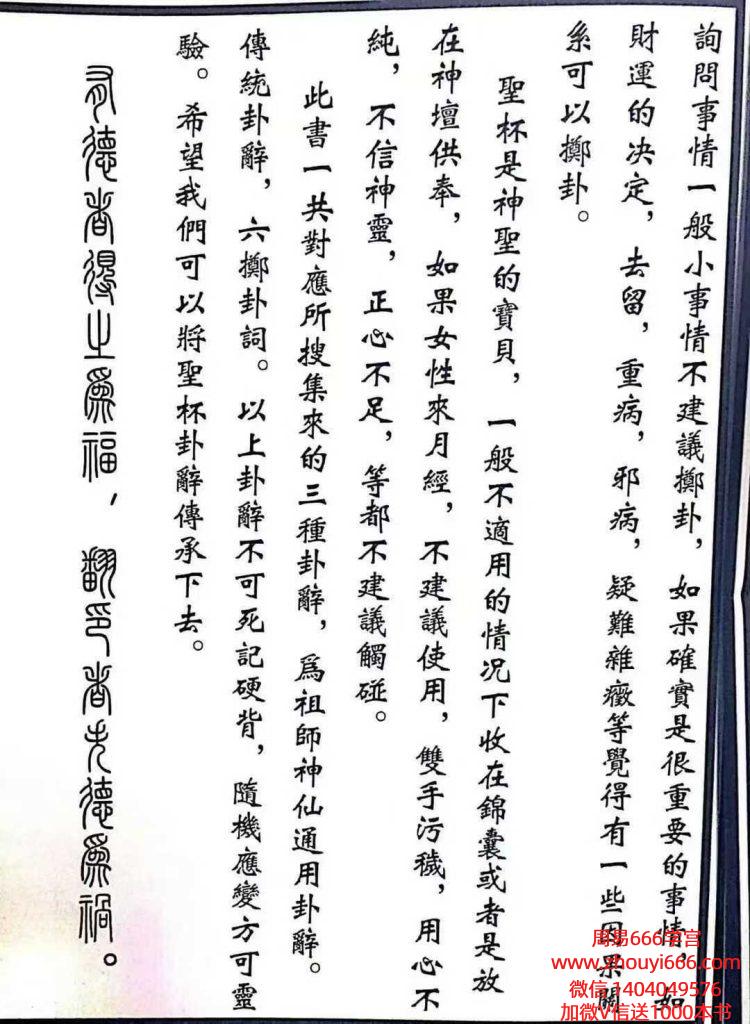 詢問事情一般小事情不建議擲卦，如果確實是很重要的事情，如
財運的决定，去留，重病，邪病，疑難雜癥等覺得有一些因果關
系可以擲卦。
聖杯是神聖的寶貝，一般不適用的情况下收在錦囊或者是放
在神壇供奉，如果女性來月經，不建議使用，雙手污穢，用心不
純，不信神靈，正心不足，等都不建議觸碰。
此書一共對應所搜集來的三種卦辭，爲祖師神仙通用卦辭。
傳統卦辭，六擲卦詞。以上卦辭不可死記硬背，隨機應變方可靈
驗。希望我們可以將聖杯卦辭傳承下去。
有德者得之爲福，翻印者失德爲禍。
周易666学宫
www.zhouyi666.com
微信 1404049576
加微V信送1000本书